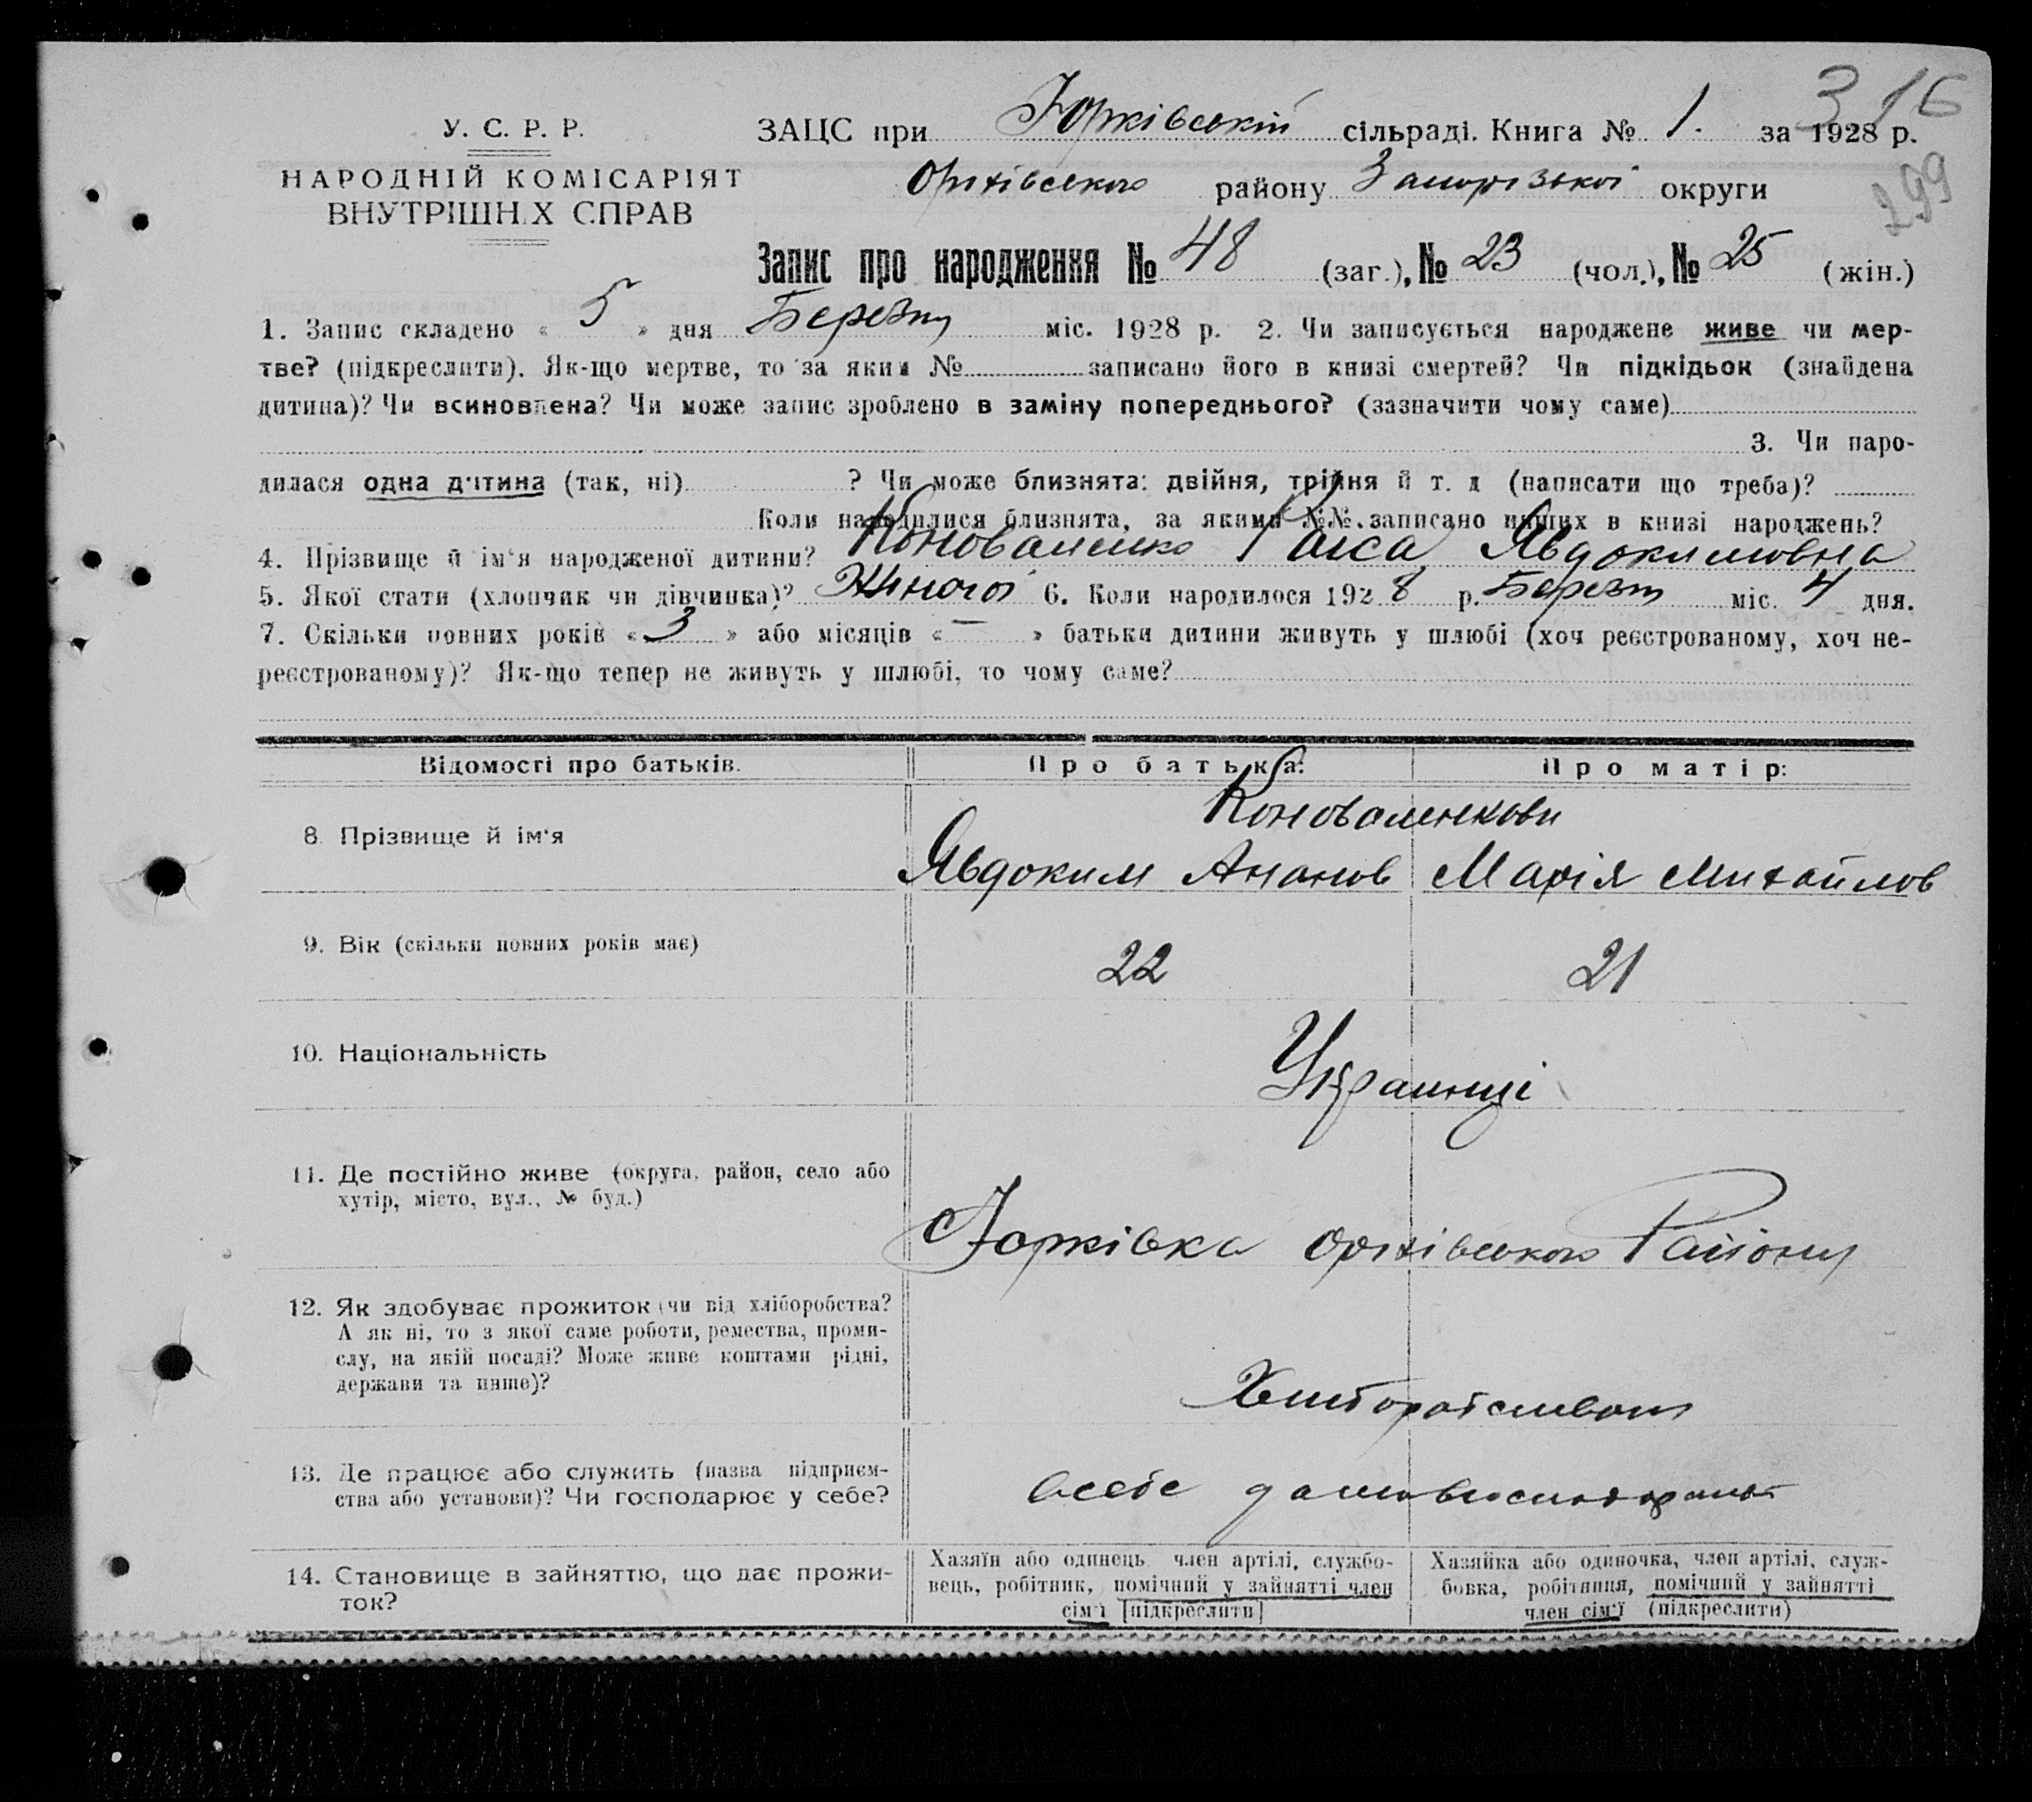 316
У. С. Р. Р.
ЗАЦС при Юрківській сільраді. Книга № 1. за 1928 р.
299
НАРОДНІЙ КОМІСАРІЯТ
ВНУТРІШН.Х СПРАВ
Оріхівського району Запорізької округи
Запис про народження № 48 (заг.), № 23 (чол.), № 25 (жін.)
1. Запис складено « 5 » дня Березня міс. 1928 р. 2. Чи записується народжене живе чи мер-
тве? (підкреслити). Як-що мертве, то за яким № записано його в книзі смертей? Чи підкідьок (знайдена
дитина)? Чи всиновлена? Чи може запис зроблено в заміну попереднього? (зазначити чому саме)
3. Чи наро-
дилася одна дитина (так, ні) ? Чи може близнята: двійня, трійня й т. д (написати що треба)?
Коли народилися близнята, за якими №№ записано инших в книзі народжень?
4. Прізвище й ім'я народженої дитини? Коноваленко Раїса Явдокимовна
5. Якої стати (хлопчик чи дівчинка)? Жіночої 6. Коли народилося 1928 р. Березня міс. 4 дня.
7. Скільки повних років « 3 » або місяців « — » батьки дитини живуть у шлюбі (хоч реєстрованому, хоч не-
реєстрованому)? Як-що тепер не живуть у шлюбі, то чому саме?
Відомості про батьків. Про батька: Про матір:
Коноваленкови
8. Прізвище й ім'я Явдоким Ананов Марія Михайлов
9. Вік (скільки повних років має) 22 21
10. Національність Украинці
11. Де постійно живе (округа, район, село або
хутір, місто, вул., № буд.)
Юрківка Оріхівського Району
12. Як здобуває прожиток (чи від хліборобства?
А як ні, то з якої саме роботи, ремества, проми-
слу, на якій посаді? Може живе коштами рідні,
держави та инше)?
Хліборобством
13. Де працює або служить (назва підприєм-
ства або установи)? Чи господарює у себе?
всебе
14. Становище в зайняттю, що дає прожи-
ток?
Хазяїн або одинець, член артілі, службо-
вець, робітник, помічний у зайнятті член
сім'ї [підкреслити]
Хазяйка або одиночка, член артілі, служ-
бовка, робітниця, помічний у зайнятті
член сім'ї (підкреслити)